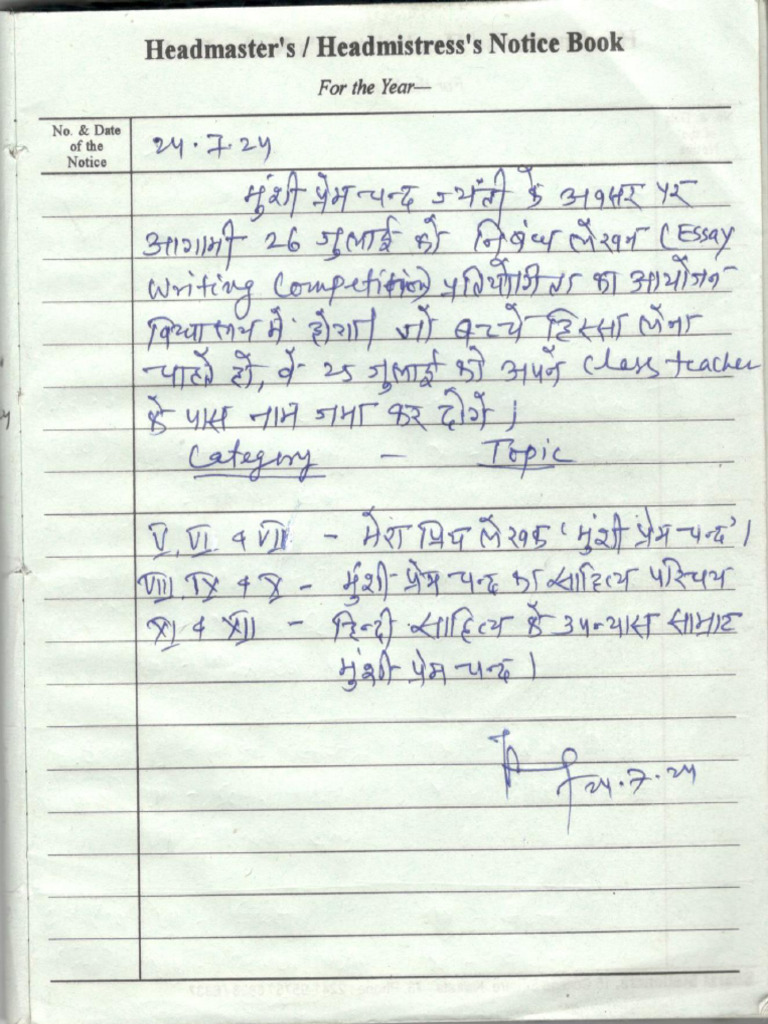 Headmaster's / Headmistress's Notice Book
For the Year—
No. & Date
of the
Notice
24.7.24
मुंशी प्रेमचन्द जयंती के अवसर पर
आगामी 26 जुलाई को निबंध लेखन (Essay
Writing Competition) प्रतियोगिता का आयोजन
विद्यालय में होगा। जो बच्चे हिस्सा लेना
चाहते हों, वे 25 जुलाई को अपने Class teacher
के पास नाम जमा कर देंगे।
Category – Topic
V, VI & VII – मेरा प्रिय लेखक 'मुंशी प्रेमचन्द'।
VIII, IX & X – मुंशी प्रेमचन्द का साहित्य परिचय
XI & XII – हिन्दी साहित्य के उपन्यास सम्राट
मुंशी प्रेमचन्द।
24.7.24